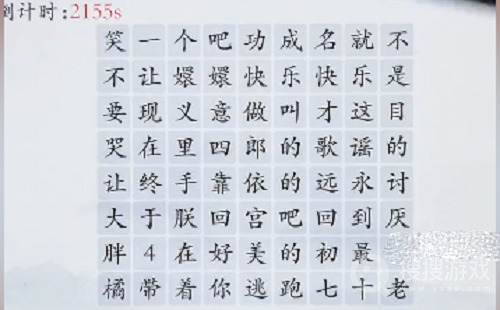 倒计时:2155s
笑一个吧功成名就不
不让嬛嬛快乐快乐是
要现义意做叫才这目
哭在里四郎的歌谣的
让终手靠依的远永讨
大于朕回宫吧回到厌
胖4在好美的初最
橘带着你逃跑七十老
搜搜游戏